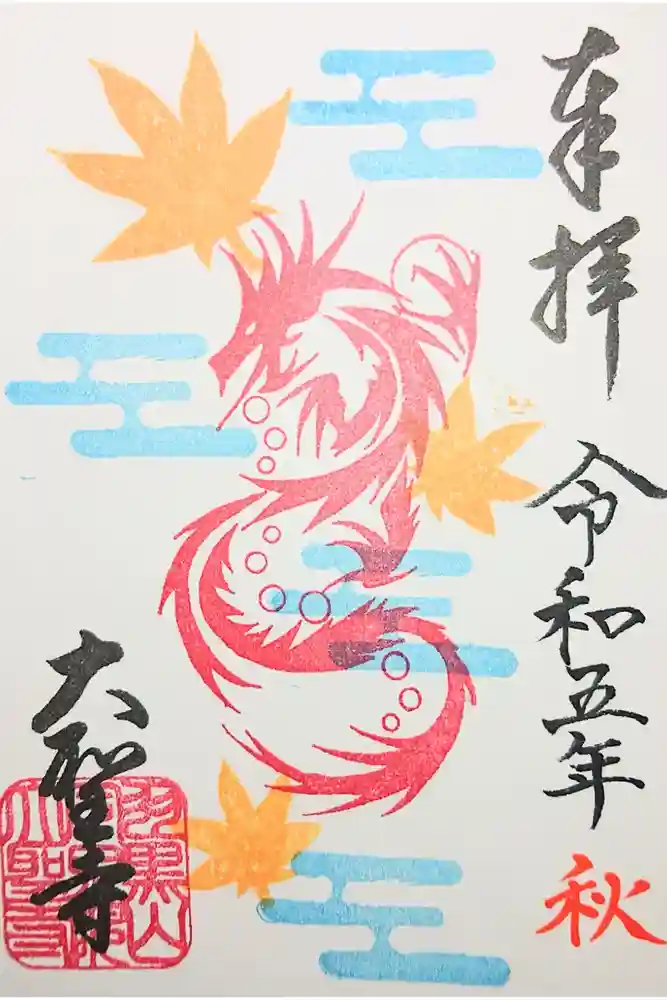 奉拝
令和五年
秋
大聖寺